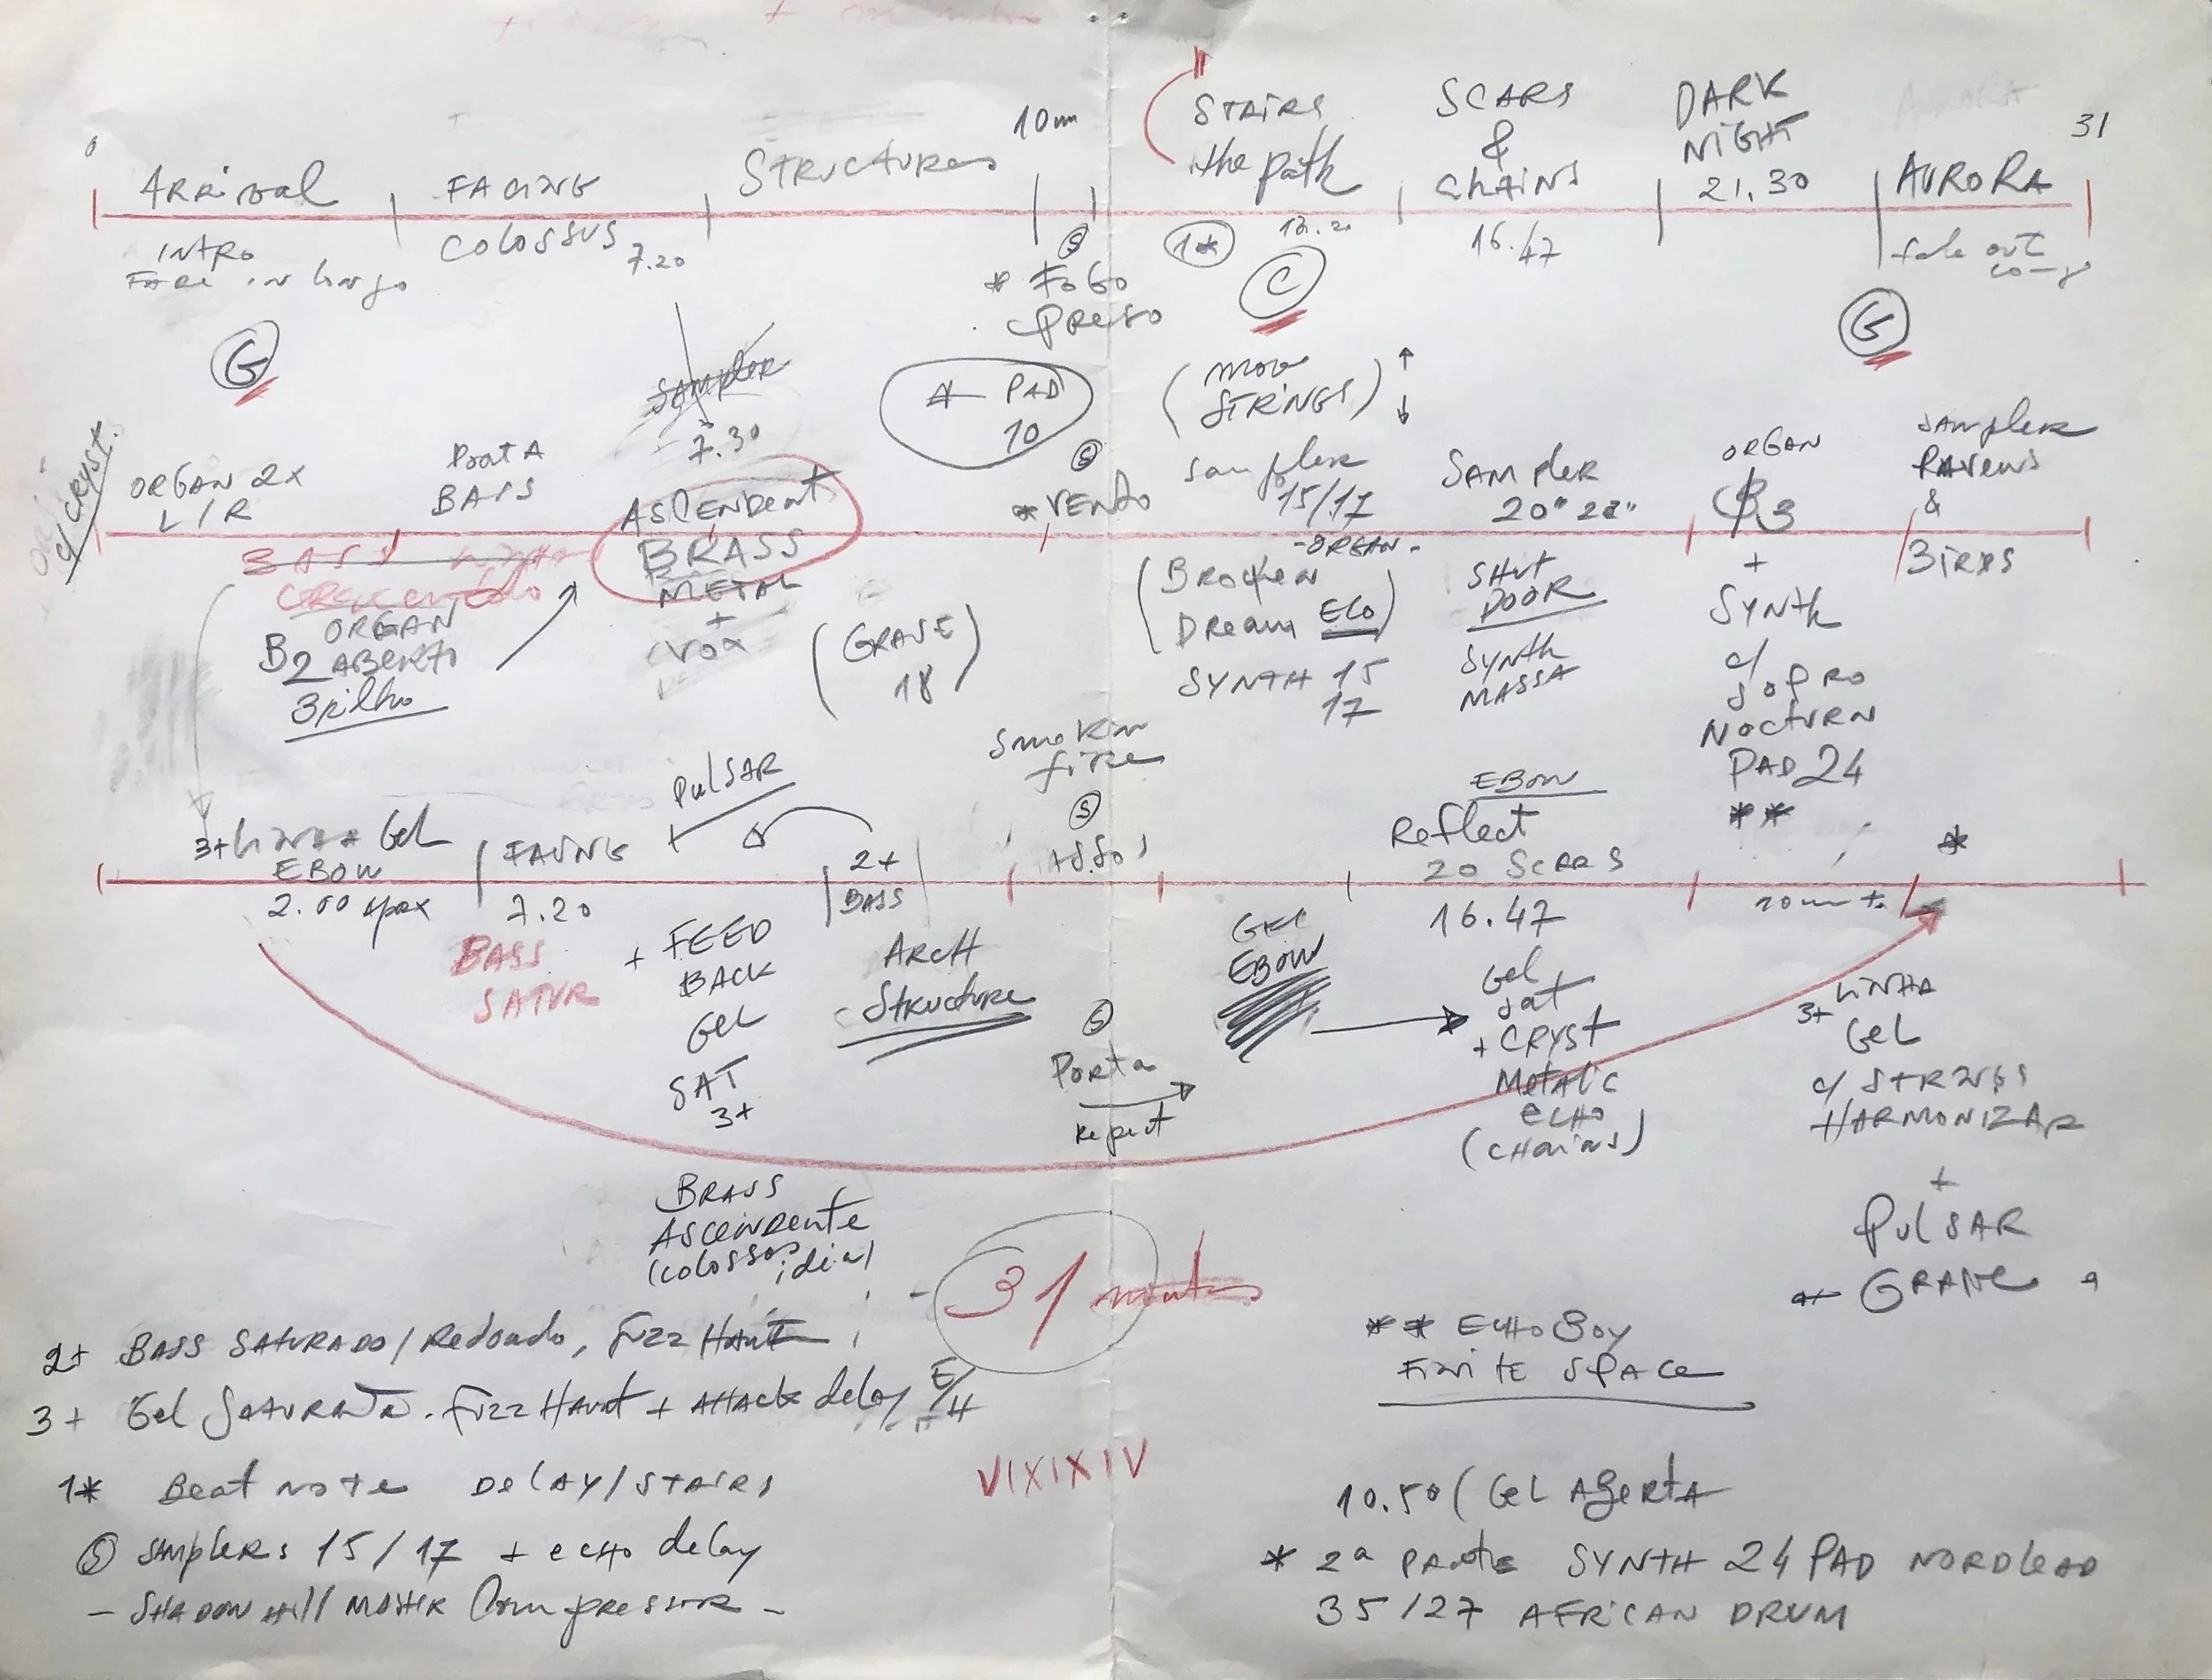 0
ARRIVAL
FACING
STRUCTURES
10 mn
STAIRS
the path
SCARS
&
CHAINS
DARK
NIGHT
21.30
AURORA
31
INTRO
COLOSSUS
7.20
1*
16.47
fade out
S
* FOGO
PRESO
C
G
G
SAMPLER
7.30
PAD
10
(MOOV
STRINGS)
C/ CRYST.
ORGAN 2X
L/R
BASS
S
* VENTO
Sampler
15/17
SAMPLER
20" 28"
ORGAN
B3
SAMPLER
RAVENS
&
BIRDS
ASCENDENT
BRASS
METAL
+
VOX
BASS
CRESCENDO
ORGAN
B2 ABERTO
Brilho
(GRAVE
18)
- ORGAN -
(BROKEN
DREAM ECO)
SYNTH 15
17
SHUT
DOOR
SYNTH
MASSA
+
SYNTH
c/
SOPRO
NOCTURN
PAD 24
**
SMOKIN
FIRE
S
PULSAR
3+ LINHA GEL
EBOW
2.00 APRX
FACING
7.20
2+
BASS
EBOW
Reflect
20 SCARS
16.47
*
BASS
SATUR
+ FEED
BACK
GEL
SAT
3+
ARCH
STRUCTURE
S
PORTA
Repeat
GEL
EBOW
GEL
SAT
+ CRYST
METALIC
ECHO
(CHAINS)
3+ LINHA
GEL
c/ STRINGS
HARMONIZAR
+
PULSAR
GRAVE
BRASS
ASCENDENTE
31 minutes
2+ BASS SATURADO/Redondo, FUZZ HAUNT
3+ GEL SATURATE. FUZZ HAUNT + ATTACK delay E/H
1* BEAT NOTE DELAY/STAIRS
S SAMPLERS 15/17 + ECHO delay
- SHADOW Hill MASTER COMPRESSOR -
VIXIXIV
** ECHOBOY
FINITE SPACE
10.50 (GEL ABERTA
* 2ª PARTE SYNTH 24 PAD NORDLEAD
35/27 AFRICAN DRUM